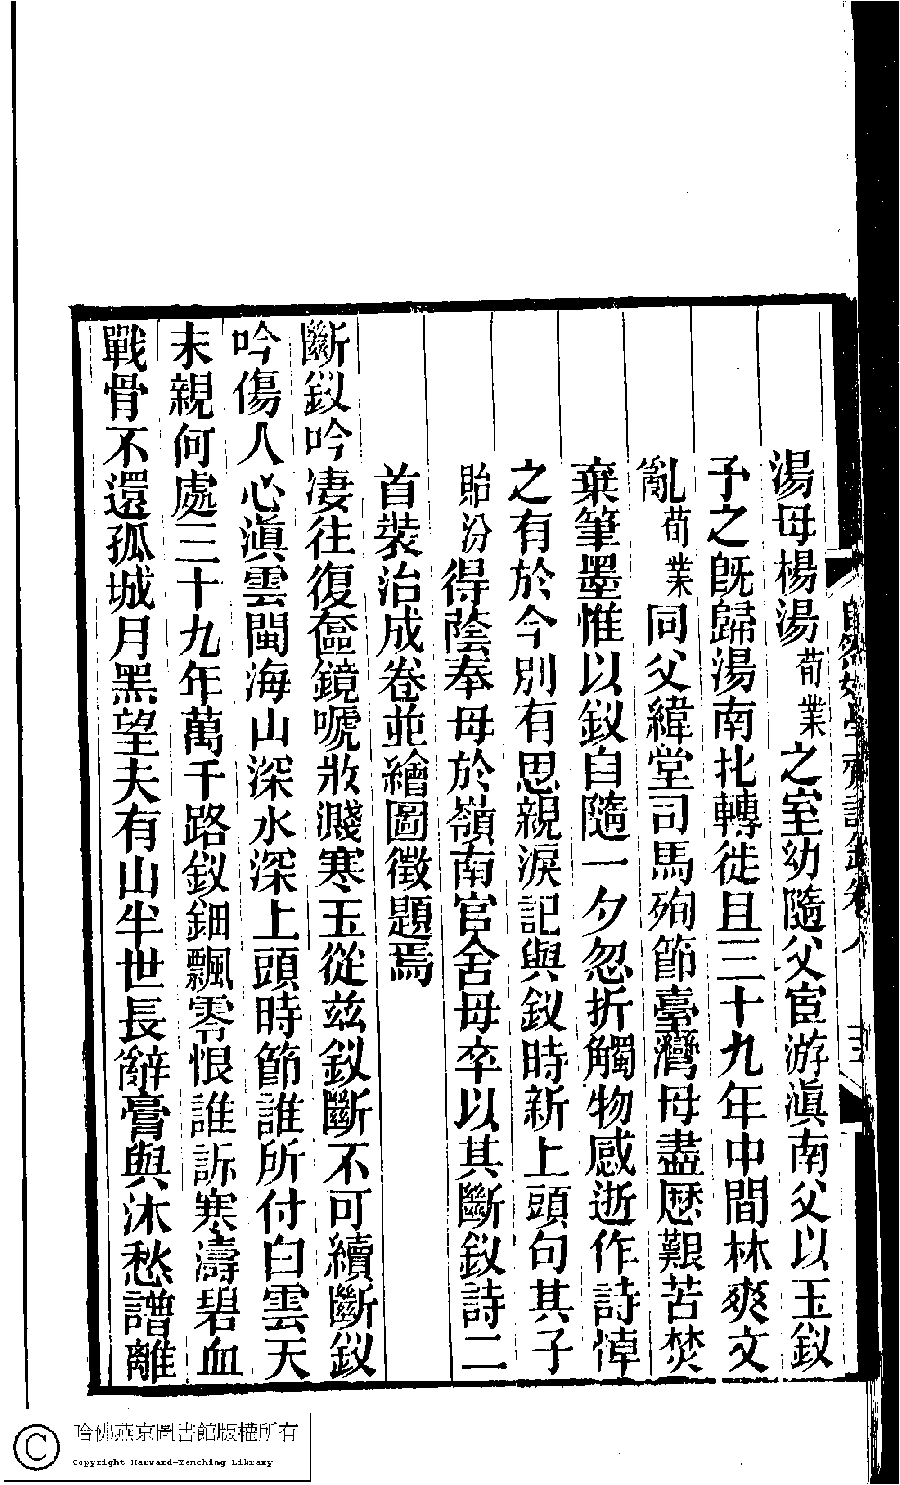 湯母楊湯荀業之室幼隨父宦游滇南父以玉釵
予之旣歸湯南北轉徙且三十九年中間林爽文
亂荀業同父緯堂司馬殉節臺灣母盡歷艱苦焚
棄筆墨惟以釵自隨一夕忽折觸物感逝作詩悼
之有於今別有思親淚記與釵時新上頭句其子
貽汾得蔭奉母於嶺南官舍母卒以其斷釵詩二
首裝治成卷並繪圖徵題焉
斷釵吟凄往復奩鏡唬妝濺寒玉從茲釵斷不可續斷釵
吟傷人心滇雲閩海山深水深上頭時節誰所付白雲天
末親何處三十九年萬千路釵鈿飄零恨誰訴寒濤碧血
戰骨不還孤城月黑望夫有山半世長辭膏與沐愁譜離
哈佛燕京圖書館版權所有
Copyright Harvard-Yenching Library